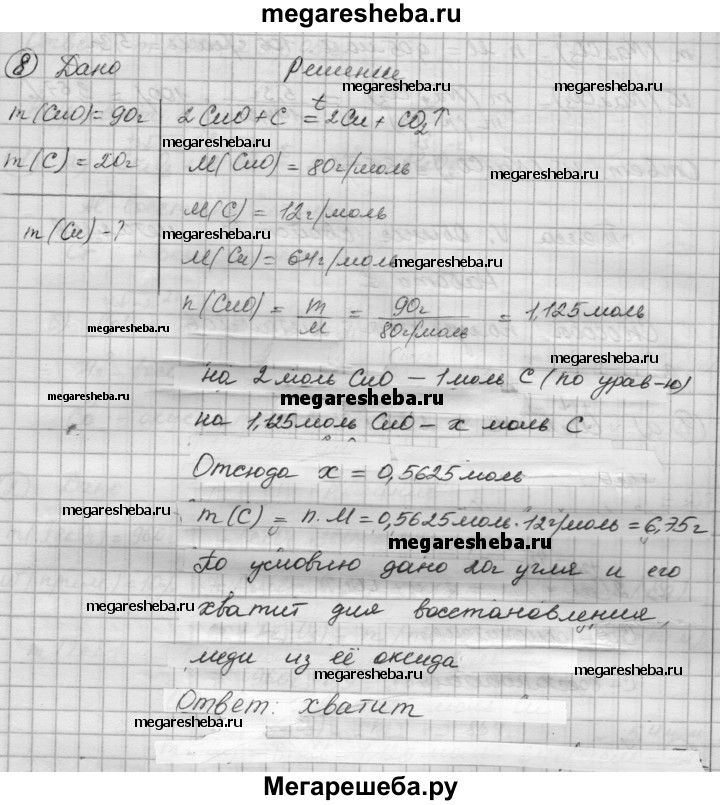 megaresheba.ru
8 Дано Решение
megaresheba.ru
m(CuO)=90г 2CuO+C t= 2Cu+CO2↑
megaresheba.ru
m(C)=20г M(CuO)=80г/моль
M(C)=12г/моль
m(Cu)-? megaresheba.ru
M(Cu)=64г/моль megaresheba.ru
n(CuO)= m/M = 90г/80г/моль = 1,125моль
megaresheba.ru
megaresheba.ru
на 2 моль CuO – 1 моль C (по урав-ю)
megaresheba.ru megaresheba.ru
на 1,125моль CuO – x моль C
Отсюда x = 0,5625моль
megaresheba.ru
m(C) = n.M = 0,5625моль·12г/моль = 6,75г
megaresheba.ru
По условию дано 20г угля и его
megaresheba.ru хватит для восстановления
меди из её оксида megaresheba.ru
Ответ: хватит
megaresheba.ru
megaresheba.ru
Мегарешеба.ру